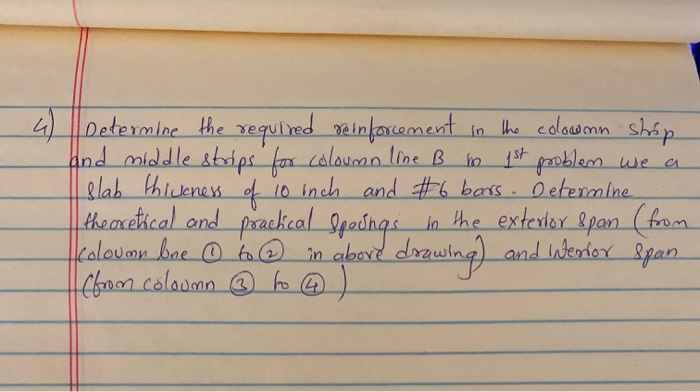 4) Determine the required reinforcement in the coloumn strip
and middle strips for coloumn line B in 1st problem use a
slab thickness of 10 inch and #6 bars. Determine
theoretical and practical spacings in the exterior span (from
coloumn line ① to ② in above drawing) and interior span
(from coloumn ③ to ④)